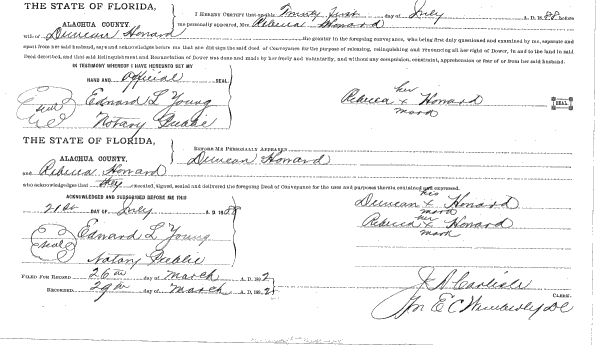 THE STATE OF FLORIDA,
ALACHUA COUNTY.
I HEREBY CERTIFY that on this Twenty First day of July A. D. 1888 before
me personally appeared, Mrs. Rebecca Howard
wife of Duncan Howard the grantor in the foregoing conveyance, who being first duly questioned and examined by me, separate and
apart from her said husband, says and acknowledges before me that she did sign the said deed of Conveyance for the purpose of releasing, relinquishing and renouncing all her right of Dower, in and to the land in said
Deed described, and that said Relinquishment and Renunciation of Dower was done and made by her freely and voluntarily, and without any compulsion, constraint, apprehension or fear of or from her said husband.
IN TESTIMONY WHEREOF I HAVE HEREUNTO SET MY
HAND AND official SEAL
Seal
Edward L Young
Notary Public
her
Rebecca x Howard
mark
SEAL
THE STATE OF FLORIDA,
ALACHUA COUNTY.
BEFORE ME PERSONALLY APPEARED
Duncan Howard
and Rebecca Howard
who acknowledges that they executed, signed, sealed and delivered the foregoing Deed of Conveyance for the uses and purposes therein contained and expressed.
ACKNOWLEDGED AND SUBSCRIBED BEFORE ME THIS
21st DAY OF July A. D. 1888
Seal
Edward L Young
Notary Public
his
Duncan x Howard
mark
her
Rebecca x Howard
mark
FILED FOR RECORD 26th day of March A. D. 1892
RECORDED 29th day of March A. D. 1892
J A Carlisle
CLERK.
Per E C Wimberly DC